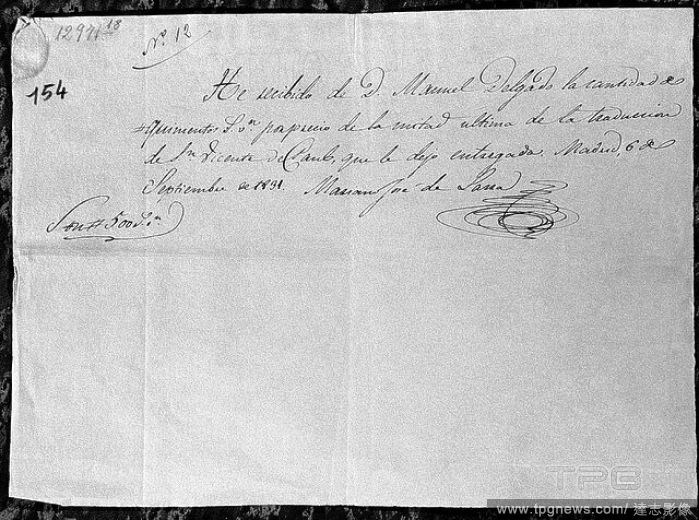 12971 18
Nº 12
154
He recibido de D. Manuel Delgado la cantidad de
quinientos r.s v.n por precio de la mitad ultima de la traduccion
de S.n Vicente de Paul, que le dejo entregada. Madrid, 6 de
Septiembre de 1831. Mariano José de Larra
Son # 500 r.s v.n
TPG
www.tpgnews.com/ 達志影像